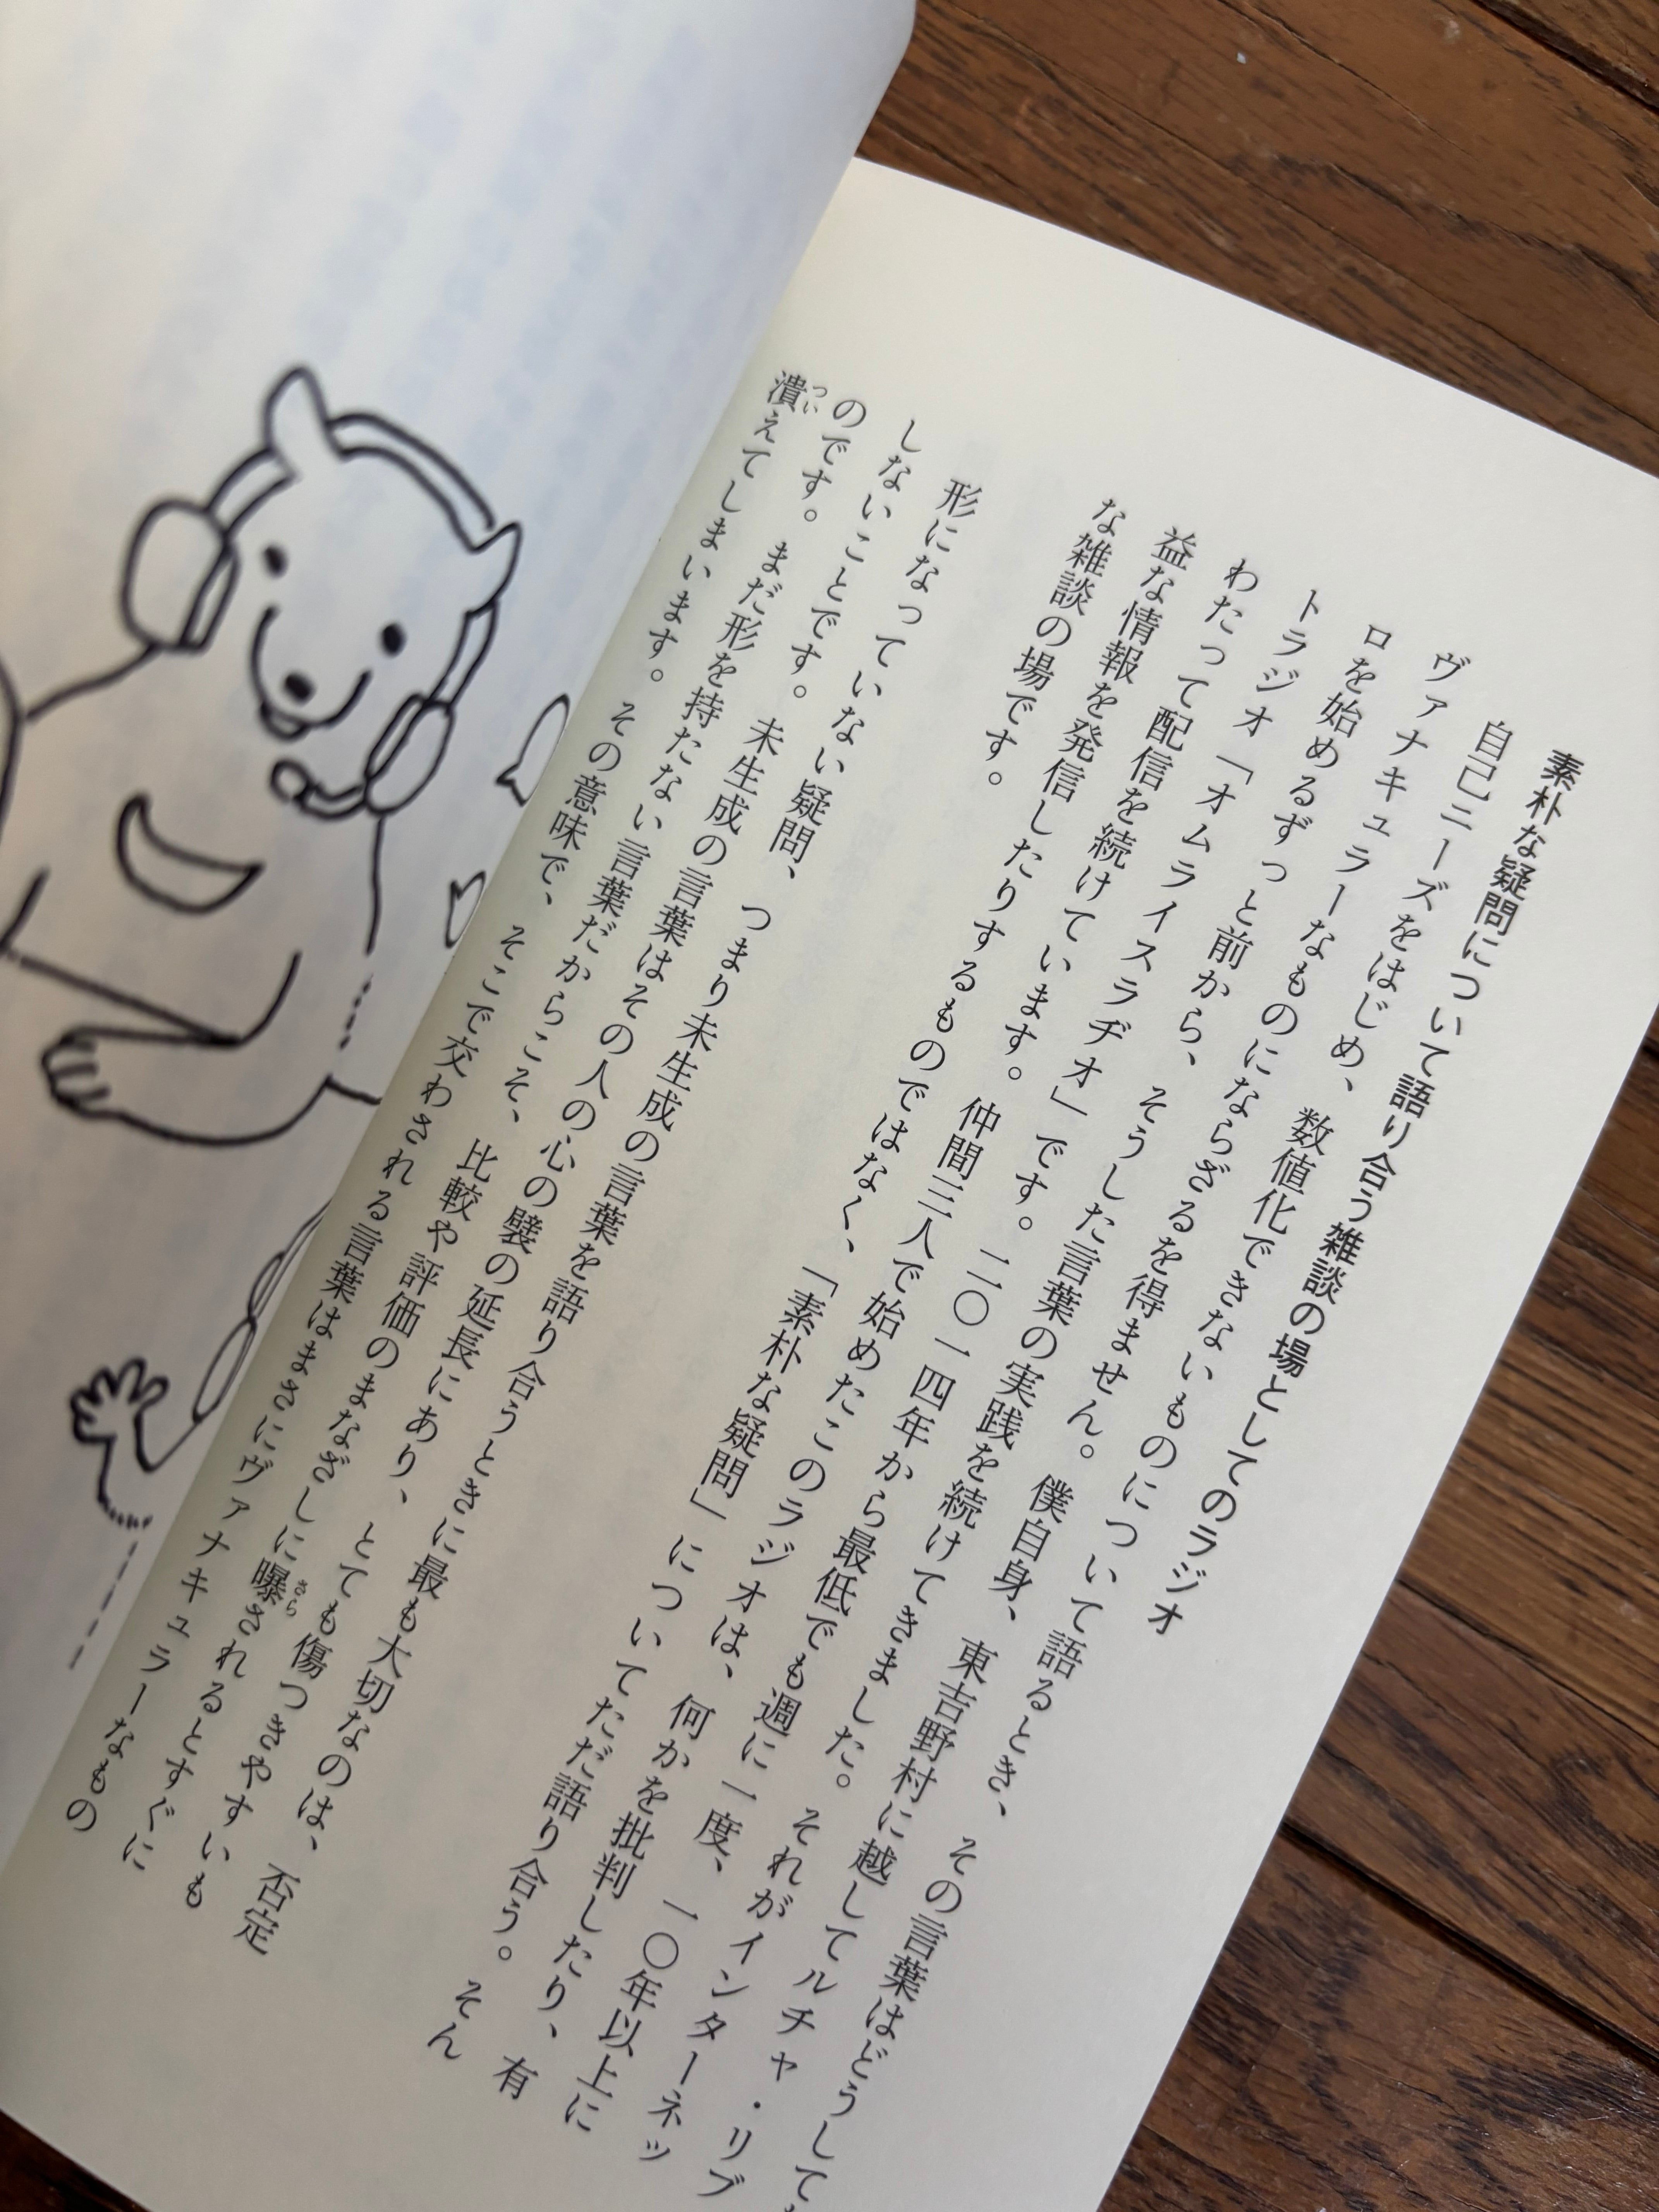 素朴な疑問について語り合う雑談の場としてのラジオ
自己ニーズをはじめ、数値化できないものについて語るとき、その言葉はどうして
ヴァナキュラーなものにならざるを得ません。僕自身、東吉野村に越してルチャ・リブ
ロを始めるずっと前から、そうした言葉の実践を続けてきました。それがインターネッ
トラジオ「オムライスラヂオ」です。二〇一四年から最低でも週に一度、一〇年以上に
わたって配信を続けています。仲間三人で始めたこのラジオは、何かを批判したり、有
益な情報を発信したりするものではなく、「素朴な疑問」についてただ語り合う。そん
な雑談の場です。
形になっていない疑問、つまり未生成の言葉を語り合うときに最も大切なのは、否定
しないことです。未生成の言葉はその人の心の襞の延長にあり、とても傷つきやすいも
のです。まだ形を持たない言葉だからこそ、比較や評価のまなざしに曝されるとすぐに
潰えてしまいます。その意味で、そこで交わされる言葉はまさにヴァナキュラーなもの